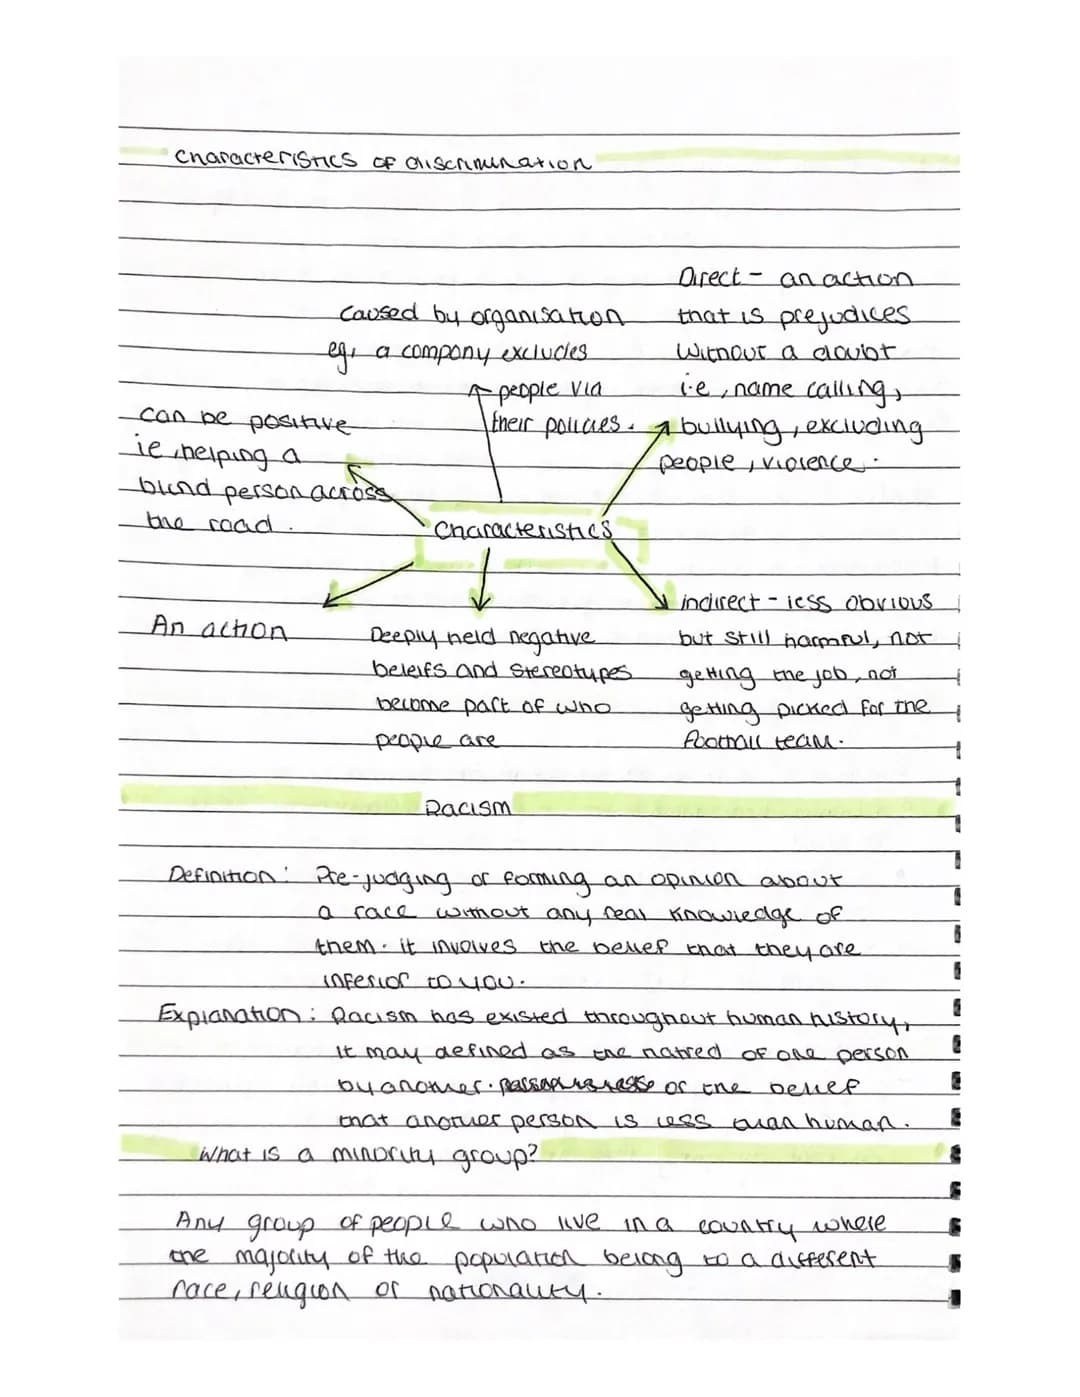 Characteristics of discrimination
Caused by organisation
eg, a company excludes
people via
their policies.
Direct - an action
that is prejudices
without a doubt
i.e, name calling,
bullying, excluding
people, violence.
can be positive
ie, helping a
blind person across
the road.
Characteristics
An action
Deeply held negative
beleifs and stereotypes
become part of who
people are
indirect - less obvious
but still harmful, not
getting the job, not
getting picked for the
football team.
Racism
Definition: Pre-judging or forming an opinion about
a race without any real knowledge of
them. it involves the belief that they are
inferior to you.
Explanation: Racism has existed throughout human history,
it may defined as the hatred of one person
by another. or the belief
that another person is less than human.
What is a minority group?
Any group of people who live in a country where
the majority of the population belong to a different
race, religion or nationality.